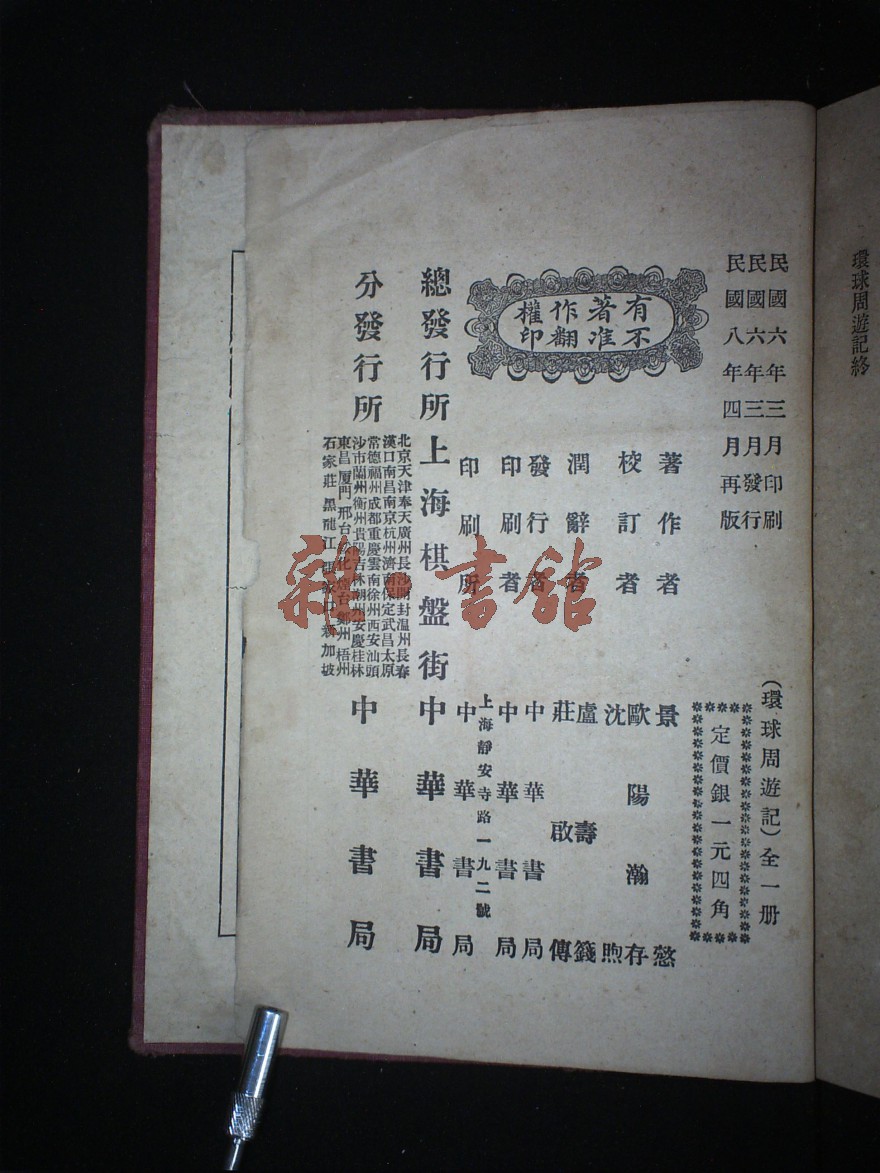 環球周遊記終
民國六年三月印刷
民國六年三月發行
民國八年四月再版
(環球周遊記)全一册
定價銀一元四角
有著作權
不准翻印
著作者 景 慤
校訂者 歐陽瀚存
沈 煦
潤辭者 盧壽籛
莊啟傳
發行者 中華書局
印刷者 中華書局
上海靜安寺路一九二號
印刷所 中華書局
總發行所 上海棋盤街 中華書局
分發行所
北京天津奉天廣州長沙開封温州長春
漢口南昌南京杭州濟南保定武昌太原
常德福州成都重慶雲南徐州西安汕頭
沙市蘭州衡州貴陽吉林潮州安慶桂林
東昌厦門邢台 化煙台鄭州梧州
石家莊黑龍江張家口新加坡
中華書局
雜書館